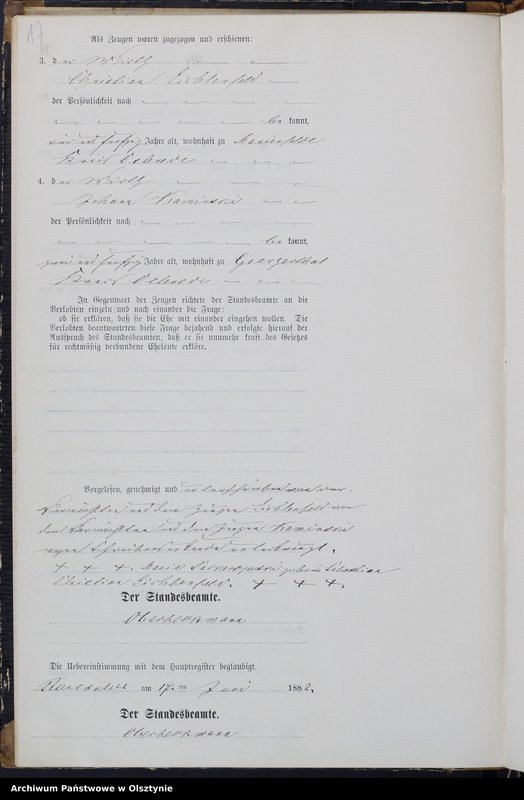 17
Als Zeugen waren zugezogen und erschienen:
3. der Wirth
Christian Lichtenfeld
der Persönlichkeit nach
be kannt,
fünfzig Jahre alt, wohnhaft zu Marienfelde
Kreis Osterode
4. der Wirth
Johann Kaminski
der Persönlichkeit nach
be kannt,
zwei und fünfzig Jahre alt, wohnhaft zu Georgenthal
Kreis Osterode
In Gegenwart der Zeugen richtete der Standesbeamte an die
Verlobten einzeln und nach einander die Frage:
ob sie erklären, daß sie die Ehe mit einander eingehen wollen. Die
Verlobten beantworteten diese Frage bejahend und erfolgte hierauf der
Ausspruch des Standesbeamten, daß er sie nunmehr kraft des Gesetzes
für rechtmäßig verbundene Eheleute erkläre.
Vorgelesen, genehmigt und unterschrieben von der
Vermählten und dem Zeugen Lichtenfeld von
dem Vermählten und dem Zeugen Kaminski
wegen Schreibensunkunde unterkreuzt.
+ + +. Marie geborene
Christian Lichtenfeld. + + +.
Der Standesbeamte.
Die Uebereinstimmung mit dem Hauptregister beglaubigt.
am 17. ten Juni 1882.
Der Standesbeamte.
Archiwum Państwowe w Olsztynie